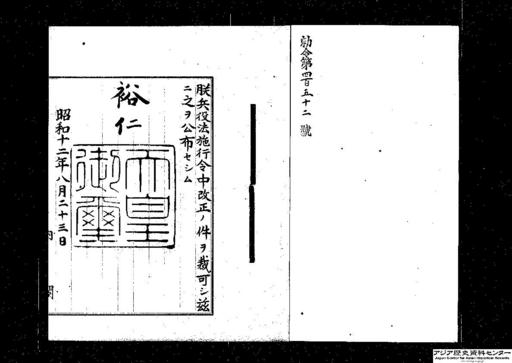 勅令第四百五十二號
朕兵役法施行令中改正ノ件ヲ裁可シ茲
ニ之ヲ公布セシム
裕仁
天皇御璽
昭和十二年八月二十三日
内閣
アジア歴史資料センター
Japan Center for Asian Historical Records